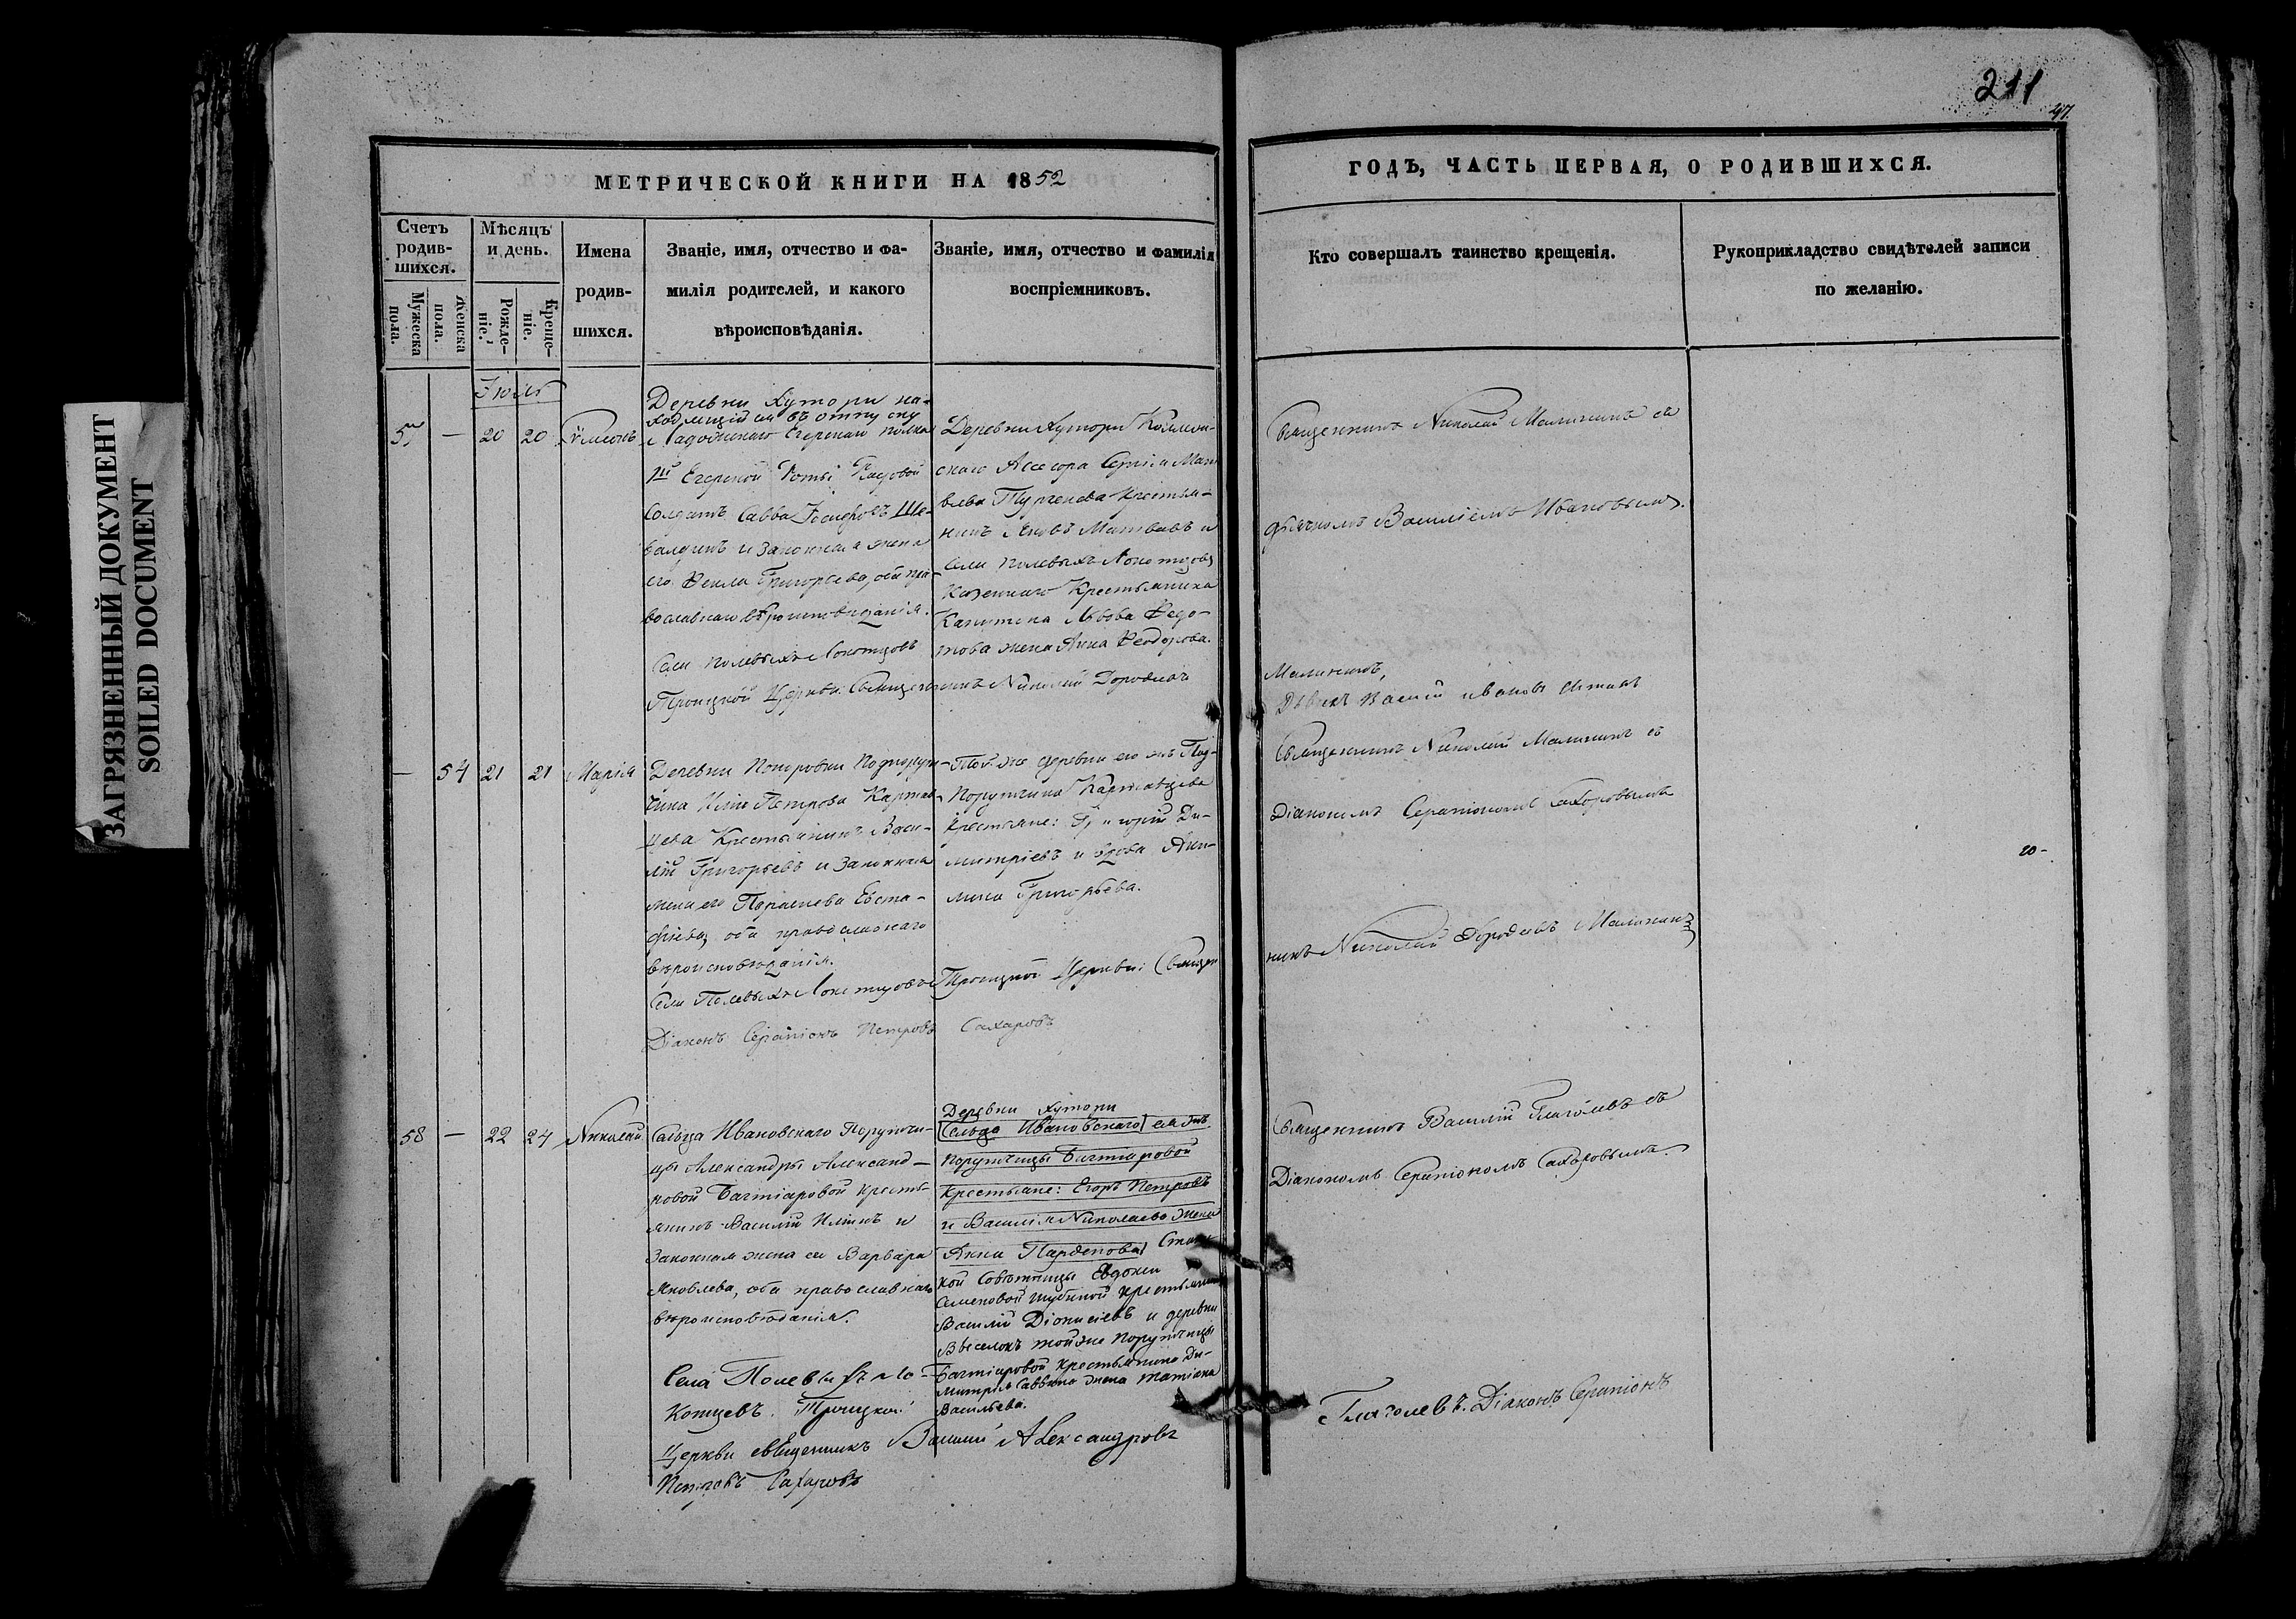 ЗАГРЯЗНЕННЫЙ ДОКУМЕНТ
SOILED DOCUMENT
МЕТРИЧЕСКОЙ КНИГИ НА 1852
Счетъ родив-шихся.
Мужеска пола.
Женска пола.
Мѣсяцъ и день.
Рожде-ніе.
Креще-ніе.
Имена
родив-
шихся.
Званіе, имя, отчество и фа-
милія родителей, и какого
вѣроисповѣданія.
Званіе, имя, отчество и фамилія
воспріемниковъ.
Іюль
57 — 20 20
Деревни Хутори на-
ходящійся въ отпуску
Егерскаго полка
Егерской Роты Рядовой
Солдатъ Савва
и законная жена
его Фекла Григорьева, оба пра-
вославнаго вѣроисповѣданія.
Села Полевыхъ Локотцовъ
Троицкой Церкви Священникъ Николай Дороѳеевъ
Деревни Хутори Коллеж-
скаго Асесора Сергія Мат-
вѣева Тургенева Крестья-
нинъ Яковъ Матвѣевъ и
села Полевыхъ Локотцовъ
Казеннаго Крестьянина
Капитона Львова Ѳедо-
това жена Анна Ѳеодорова.
— 54 21 21 Марія
Деревни Покровки Подпорут-
чика Ильи Петрова Каржав-
цева Крестьянинъ Васи-
лій Григорьевъ и законная
жена его Параскева Евста-
фіева, оба православнаго
вѣроисповѣданія.
Села Полевыхъ Локотцовъ Троицкой Церкви: Священ
Діаконъ Серапіонъ Петровъ Сахаровъ
Той же деревни его жъ Под-
порутчика Каржавцева
Крестьяне: Ди-
митріевъ и вдова Аки-
лина Григорьева.
58 — 22 24 Николай
Сельца Ивановскаго Порутчи-
цы Александры Александ-
ровой Бахтіаровой кресть-
янинъ Василій Ильинъ и
законная жена его Варвара
Яковлева, оба православнаго
вѣроисповѣданія.
Села Полевыхъ Ло-
котцевъ. Троицкой
Церкви священникъ Василий Александровъ
Петровъ Сахаровъ
Деревни Хутори
Сельца Ивановскаго ея жъ
Порутчицы Бахтіаровой
Крестьяне: Егоръ Петровъ
и Василія Николаева жена
Анна Парфенова Статс-
кой Совѣтницы Евдокіи
Семеновой Шубиной Крестьянинъ
Василій Діонисіевъ и деревни
Выселокъ той же Порутчицы
Бахтіаровой крестьянина Ди-
митрія Саввина жена Татіана
Васильева.
211
47.
ГОДЪ, ЧАСТЬ ПЕРВАЯ, О РОДИВШИХСЯ.
Кто совершалъ таинство крещенія.
Рукоприкладство свидѣтелей записи
по желанію.
Священникъ Николай Малининъ съ
дьячкомъ Василіемъ Ивановымъ.
Малининъ,
Дьячекъ Василій Ивановъ
Священникъ Николай Малининъ съ
Діакономъ Серапіономъ Сахаровымъ
никъ Николай Дороѳеевъ Малининъ
Священникъ Василій Глаголевъ съ
Діакономъ Серапіономъ Сахаровымъ.
Глаголевъ. Діаконъ Серапіонъ